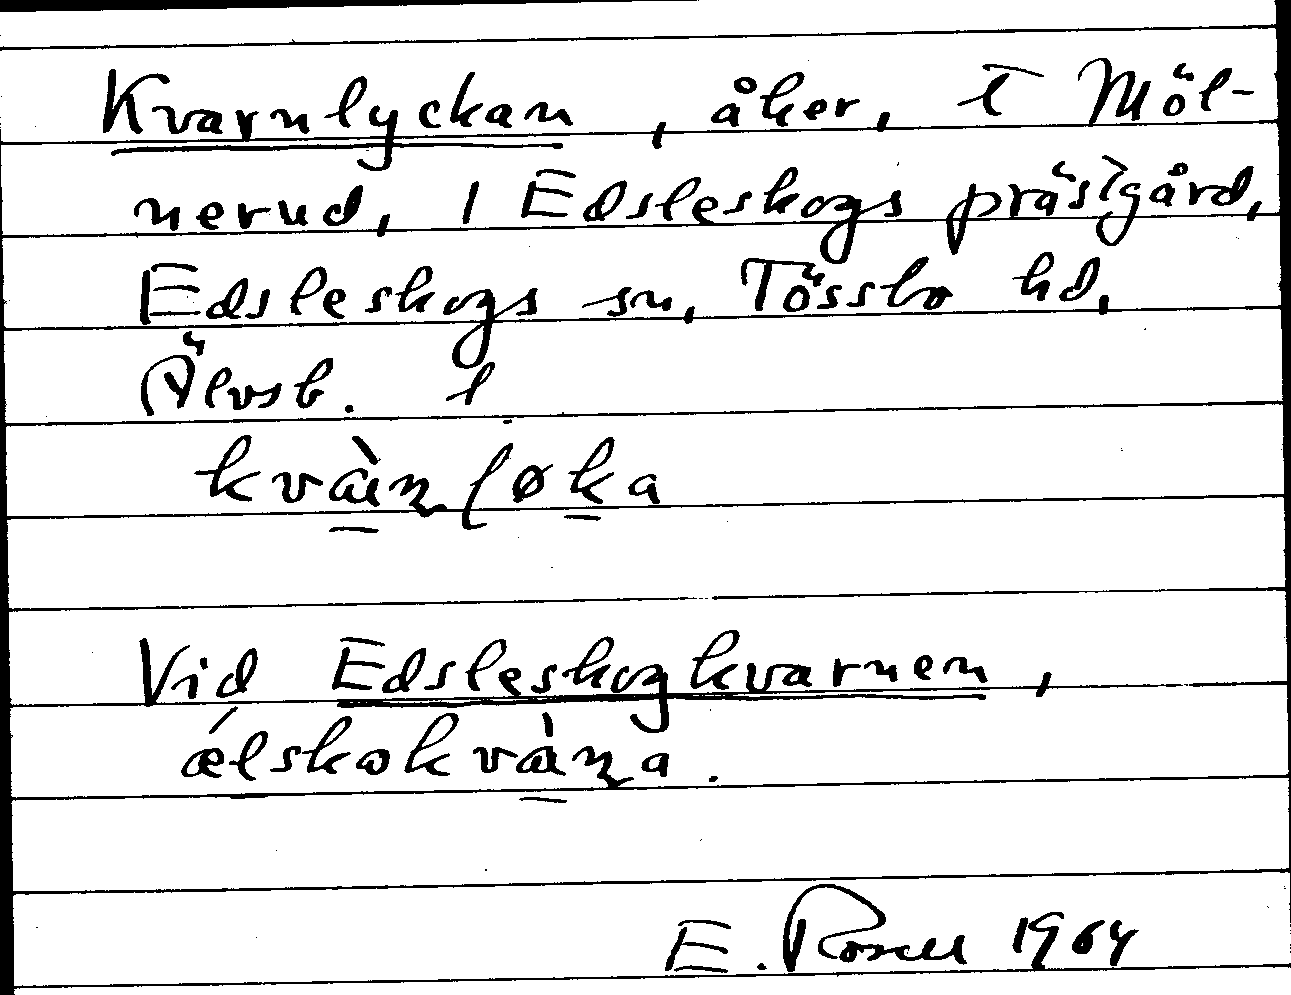 Kvarnlyckan, åker, t Möl-
nerud, 1 Edsleskogs prästgård,
Edsleskogs sn, Tössbo hd,
Älvsb. l
kvàːɳ løka
Vid Edsleskogkvarnen,
ǽlskokvàɳa.
E. Rosell 1964